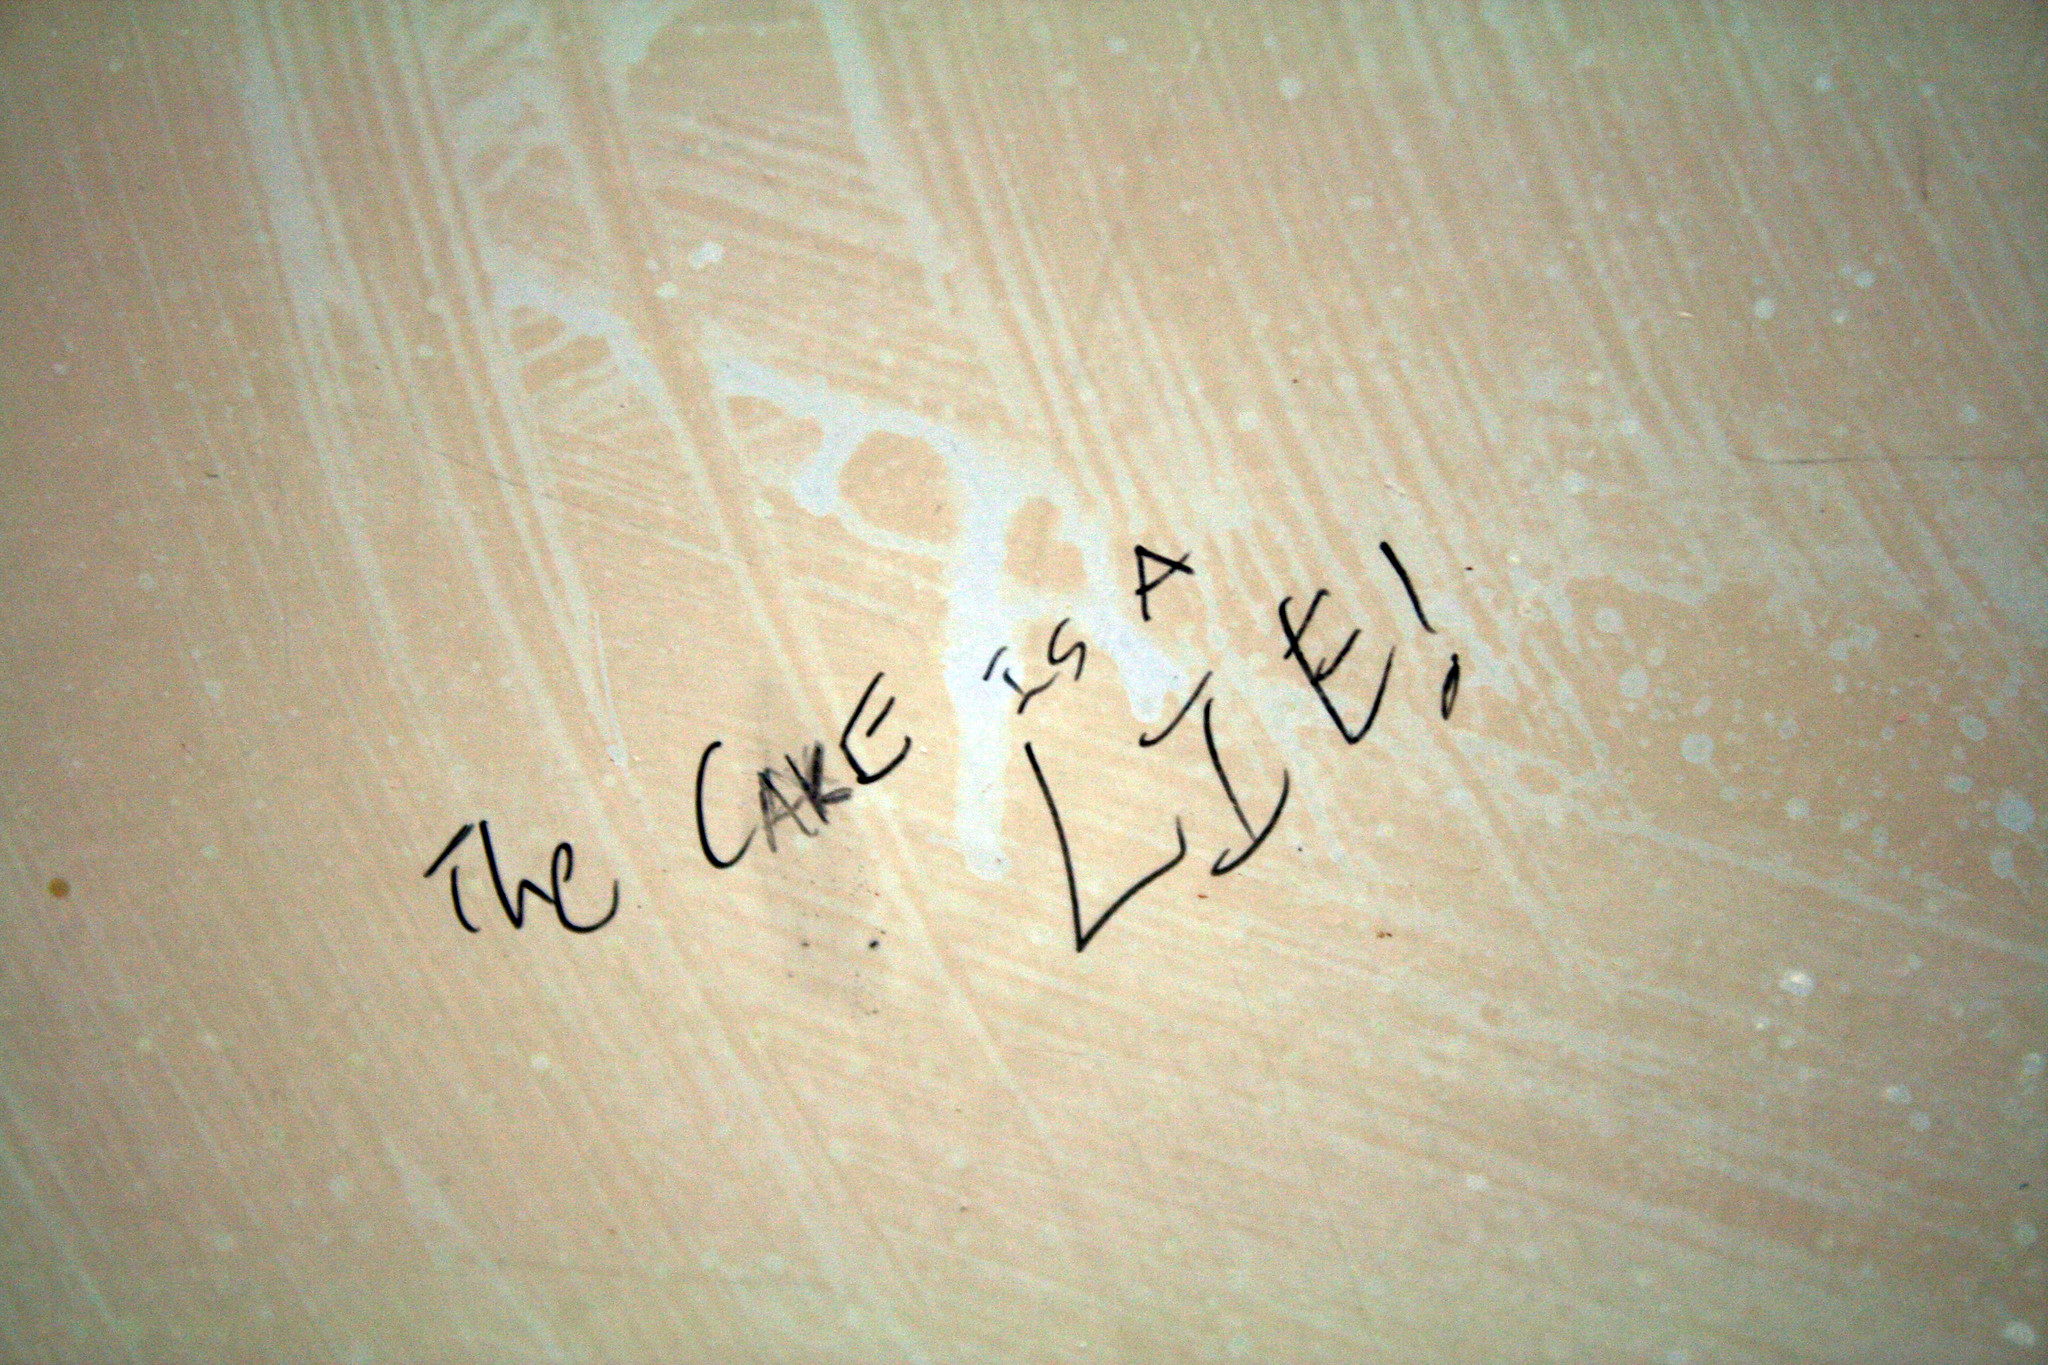 The CAKE IS A
LIE!